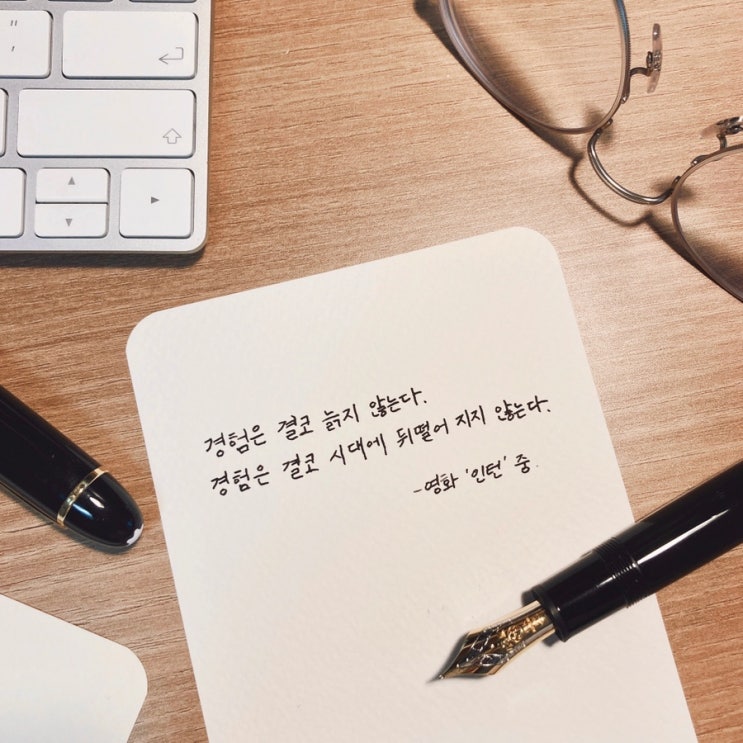 경험은 결코 늙지 않는다.
경험은 결코 시대에 뒤떨어 지지 않는다.
-영화 '인턴' 중.